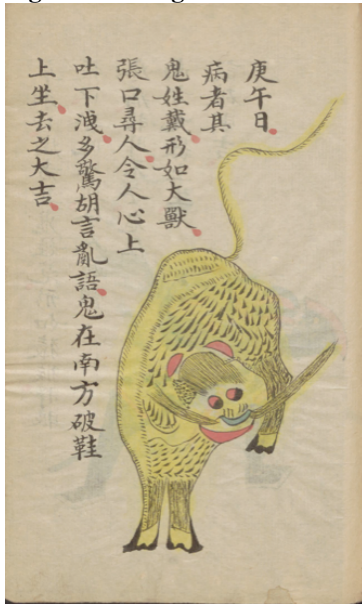 庚午日
病者其
鬼姓戴形如大獸
張口尋人令人心上
吐下洩多驚胡言亂語鬼在南方破鞋
上坐去之大吉